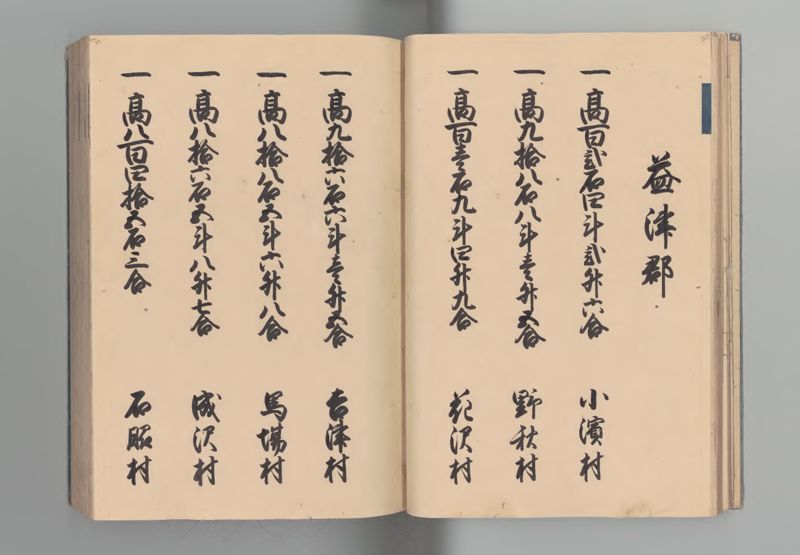 益津郡
一 高百弐石四斗弐升六合 小濱村
一 高九拾八石八斗壱升五合 野秋村
一 高百壱石九斗四升九合 花沢村
一 高九拾六石六斗壱升五合 吉津村
一 高八拾八石五斗六升八合 馬場村
一 高八拾六石五斗八升七合 成沢村
一 高八百四拾五石三合 石脇村